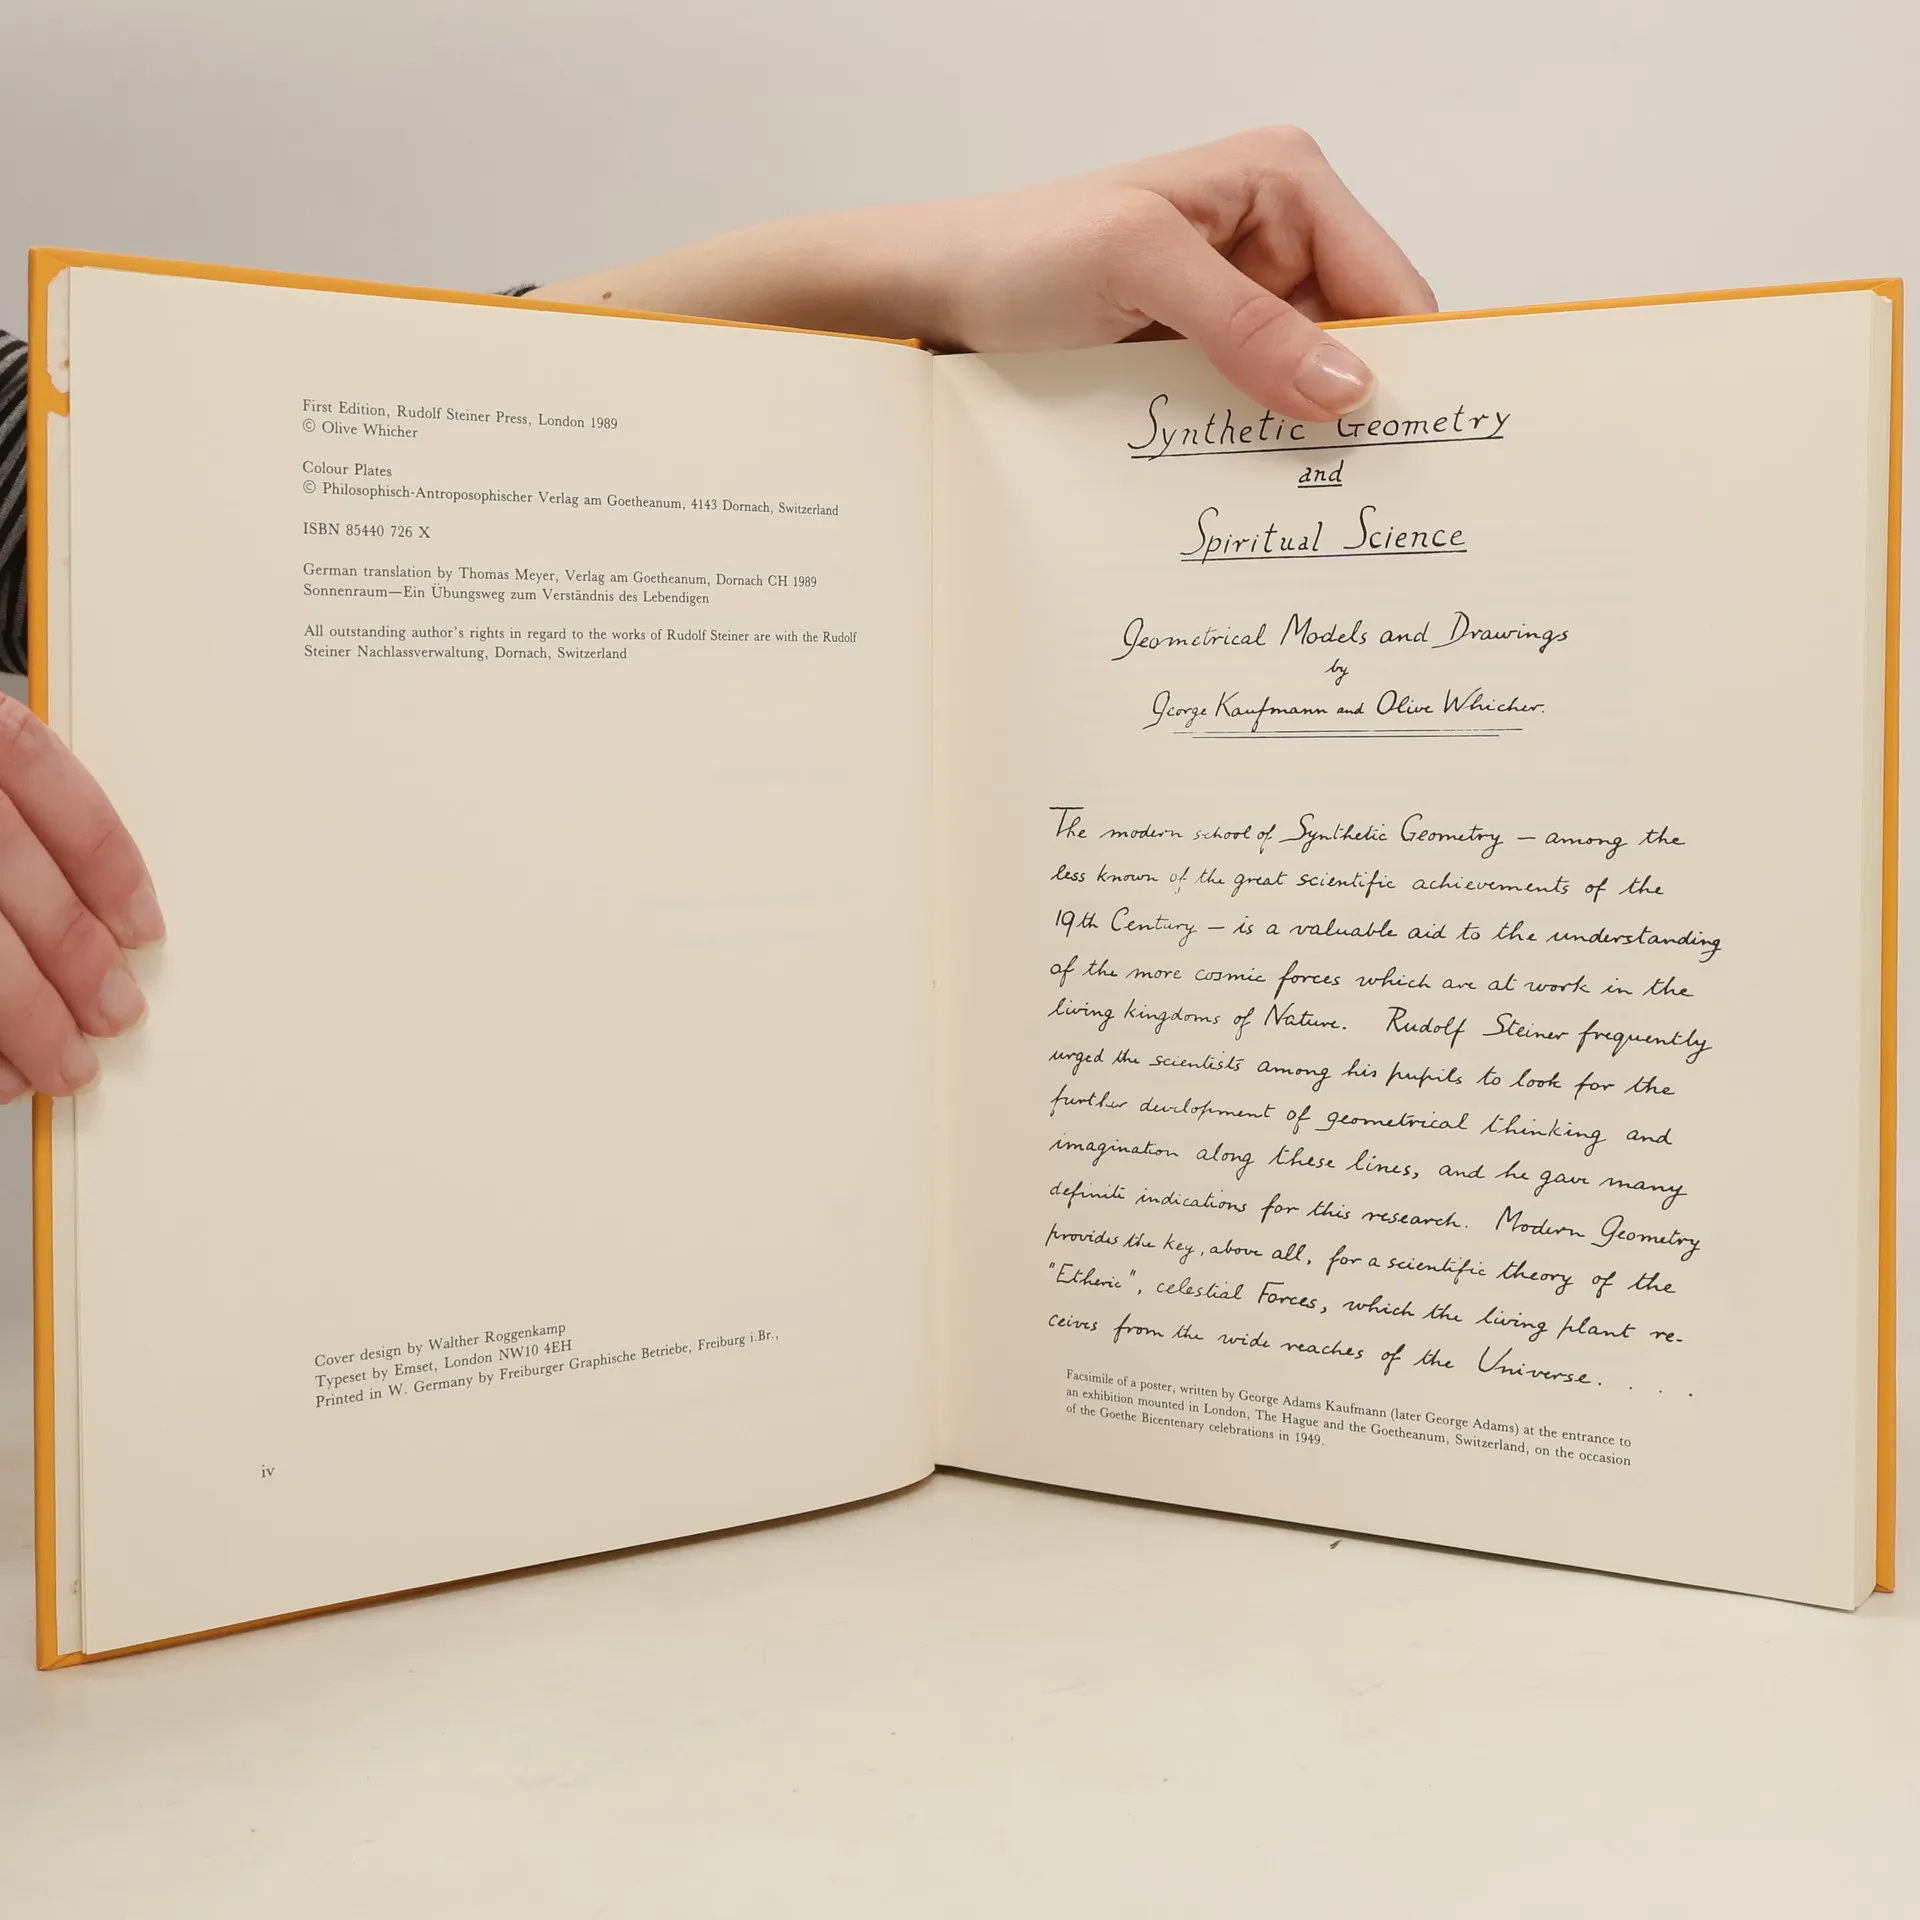 First Edition, Rudolf Steiner Press, London 1989
© Olive Whicher
Colour Plates
© Philosophisch-Antroposophischer Verlag am Goetheanum, 4143 Dornach, Switzerland
ISBN 85440 726 X
German translation by Thomas Meyer, Verlag am Goetheanum, Dornach CH 1989
Sonnenraum—Ein Übungsweg zum Verständnis des Lebendigen
All outstanding author's rights in regard to the works of Rudolf Steiner are with the Rudolf
Steiner Nachlassverwaltung, Dornach, Switzerland
Cover design by Walther Roggenkamp
Typeset by Emset, London NW10 4EH
Printed in W. Germany by Freiburger Graphische Betriebe, Freiburg i.Br.,
iv
Synthetic Geometry
and
Spiritual Science
Geometrical Models and Drawings
by
George Kaufmann and Olive Whicher.
The modern school of Synthetic Geometry — among the
less known of the great scientific achievements of the
19th Century — is a valuable aid to the understanding
of the more cosmic forces which are at work in the
living kingdoms of Nature. Rudolf Steiner frequently
urged the scientists among his pupils to look for the
further development of geometrical thinking and
imagination along these lines, and he gave many
definite indications for this research. Modern Geometry
provides the key, above all, for a scientific theory of the
"Etheric", celestial Forces, which the living plant re-
ceives from the wide reaches of the Universe. . . .
Facsimile of a poster, written by George Adams Kaufmann (later George Adams) at the entrance to
an exhibition mounted in London, The Hague and the Goetheanum, Switzerland, on the occasion
of the Goethe Bicentenary celebrations in 1949.